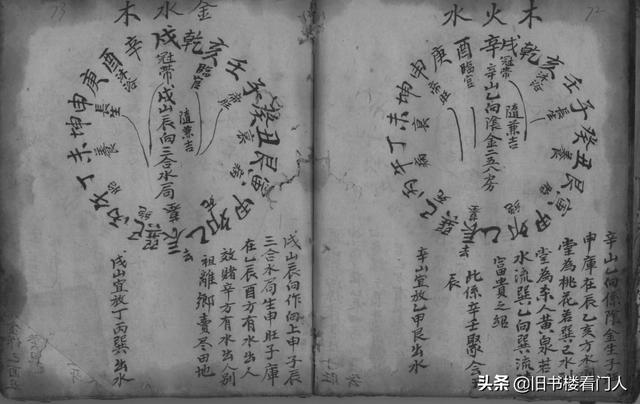 72
木火水
乾亥壬子癸丑艮寅甲卯乙辰巽巳丙午丁未坤申庚酉辛戌
冠帶
沐浴
長生
養
臨官
帝旺
衰
辛山乙向陰金二五八房
隨兼吉
辛山乙向係陰金生子
申庫在辰乙亥方水
堂為桃花若巽巳水
堂為杀人黄泉若
水流巽乙向巽流
富貴之绍
此係辛壬聚合
辰
辛山宜放乙甲艮出水
73
金水木
乾亥壬子癸丑艮寅甲卯乙辰巽巳丙午丁未坤申庚酉辛戌
冠帶
沐浴
長生
養
臨官
帝旺
衰
戍山辰向三合水局
隨兼吉
戍山辰向作向上申子辰
三合水局生申旺子庫
在乙辰酉方有水出人
效賭辛方有水出人别
祖離鄉賣尽田地
戍山宜放丁丙巽出水
头条 @旧书楼看门人